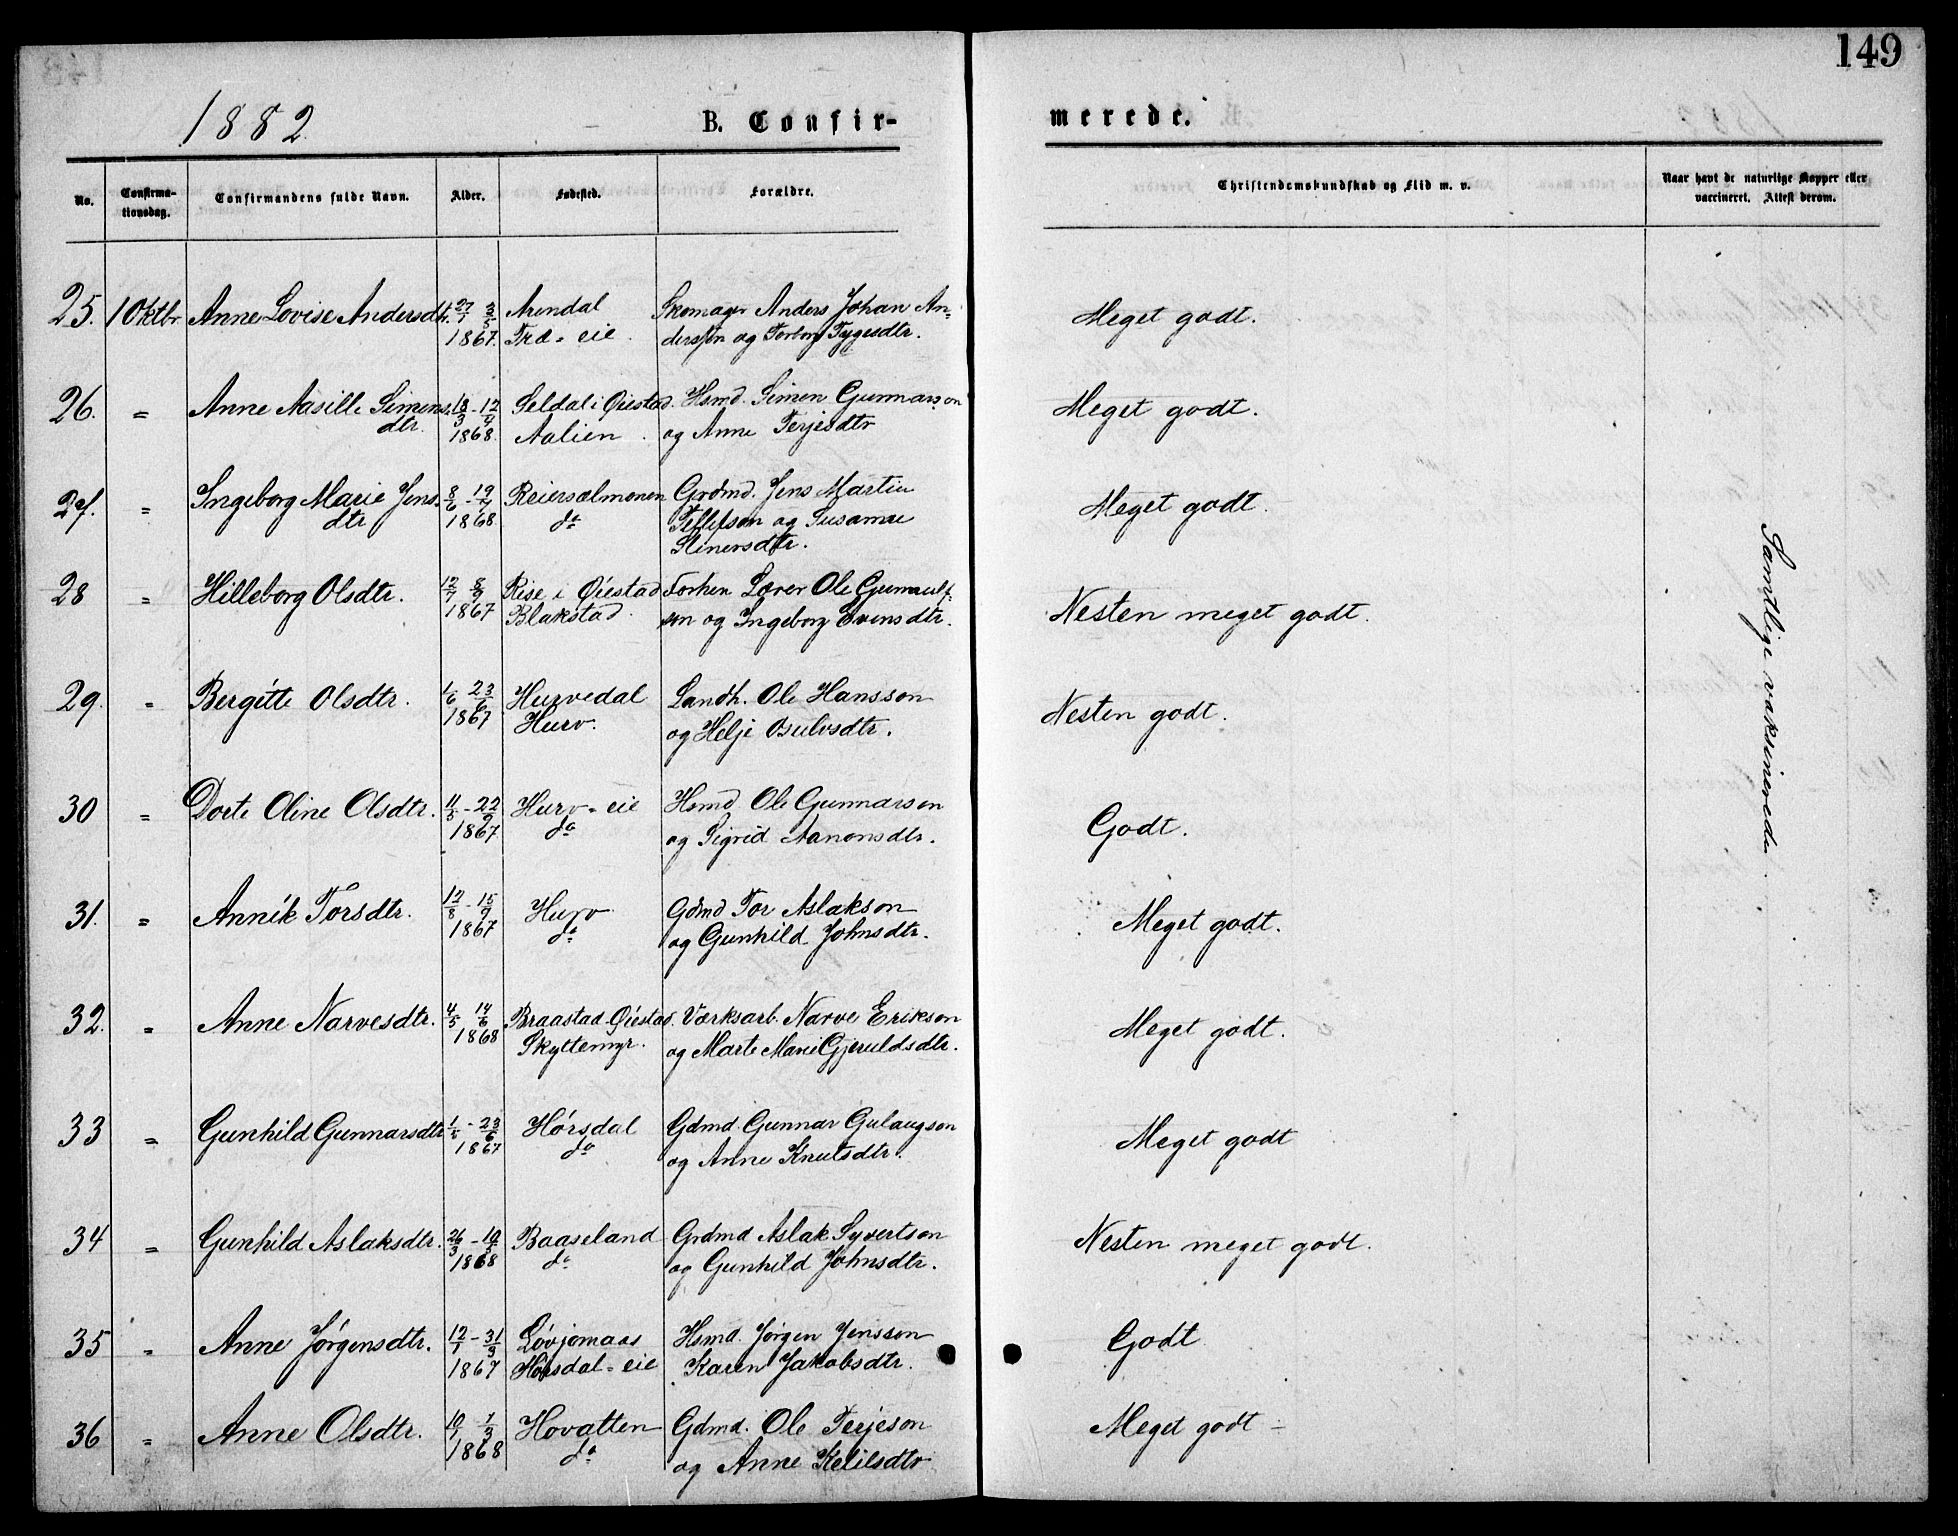 149
1882.
B. Confir-
merede.
No.
Confirma-
tionsdag.
Confirmandens fulde Navn.
Alder.
Fødested.
Forældre.
Christendomskundskab og Flid m. v.
Naar havt de naturlige Kopper eller
vaccineret. Attest derom.
25. 1 Oktbr. Anne Lovise Andersdtr. 27/1 3/5 Arendal Skomager Anders Johan An- Meget godt.
1867. Træ-eie. dersson og Torborg Tygesdtr.
26. " Anne Aasille Simens- 18/3 - 12/4 Seldal i Øiestad. Hsmd. Simen Gunnarson Meget godt.
dtr. 1868. Aalien. og Anne Terjesdtr
27. " Ingeborg Marie Jens- 8/6 - 19/7 Reiersølmonen Grdmd. Jens Martin Meget godt.
dtr 1868 do Tellefson og Susanne
Stinersdtr.
28 " Hilleborg Olsdtr. 12/7 8/9 Rise i Øiestad Forhen Lærer Ole Gunnulf- Nesten meget godt.
1867 Blakstad. son og Ingeborg Evensdtr.
29. " Bergitte Olsdtr. 1/6 23/6 Hurvedal Landh. Ole Hansson Nesten godt.
1867 Hurv. og Helje Osulvsdtr.
30 " Dorte Oline Olsdtr. 11/5 - 22/9 Hurv-eie Hsmd Ole Gunnarson Godt.
1867 do og Sigrid Aanonsdtr.
31. " Annik Torsdtr. 12/8 - 15/9 Hurv Gdmd Tor Aslakson Meget godt.
1867 do og Gunhild Johnsdtr.
32. " Anne Narvesdtr. 4/5 14/6 Braastad-Øiestad. Værksarb. Narve Erikson Meget godt.
1868 Skyttemyr. og Marte Marie Gjeruldsdtr.
33 " Gunhild Gunnarsdtr 1/5 - 23/6 Hørsdal Gdmd. Gunnar Gulaugson Meget godt
1867 do og Anne Knutsdtr.
34 " Gunhild Aslaksdtr. 26/3 - 10/5 Baaseland Grdmd Aslak Syvertson Nesten meget godt.
1868 do og Gunhild Johnsdtr.
35 " Anne Jørgensdtr. 12/1 - 31/3 Løvjomaas Hsmd. Jørgen Jensson Godt
1867 Hørsdal-eie Karen Jakobsdtr.
36 " Anne Olsdtr. 10/1 1/3 Hovatten Gdmd. Ole Terjeson Meget godt -
1868 do og Anne Kelilsdtr
Samtlige vaksinerede.